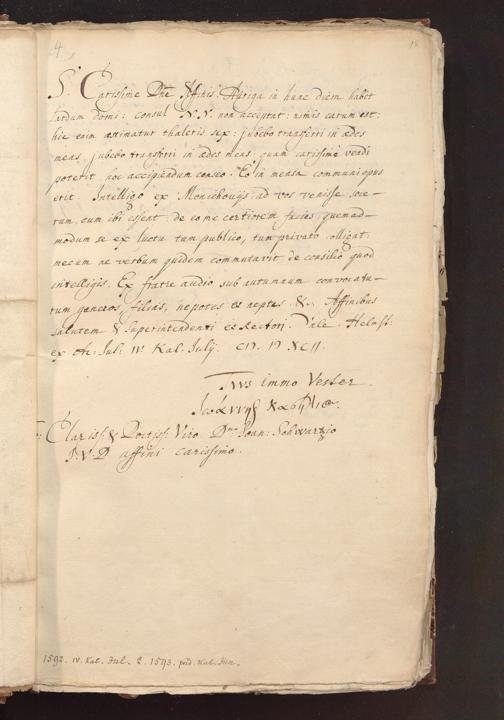 4.
18
S. Carissime Dne Affinis. Auriga in hunc diem habet
lardum domi: consul N.N. non acceptat: nimis carum est:
hic enim æstimatur thaleris sex: jubebo transferri in ædes
meas, jubebo transferri in ædes meas, quam carissimè vendi
poterit hoc accipiendum censeo. Eo in mensa communi opus
erit. Intelligo ex Monichouijs ad vos venisse soce-
rum, cum ibi essent: de eo me certiorem facies, quemad-
modum se ex luctu tum publico, tum privato colligat:
mecum ne verbum quidem commutavit de consilio quod
intelligis. Ex fratre audio sub autumnum convocatu-
rum generos filias, nepotes et neptes &c. Affinibus
salutem & Superintendenti et Rectori. Vale. Helmst.
ex Ac: Jul: IV. Kal. Julij. CIƆ. IƆ XCII.
Tuus immo Vester
Ἰωάννης
Clariss: & Doctiss: Viro Dn. Joan: Schwartzio
J.V.D affini carissimo.
1592. IV. Kal. Jul. 2. 1593. prid. Kal. Jun.